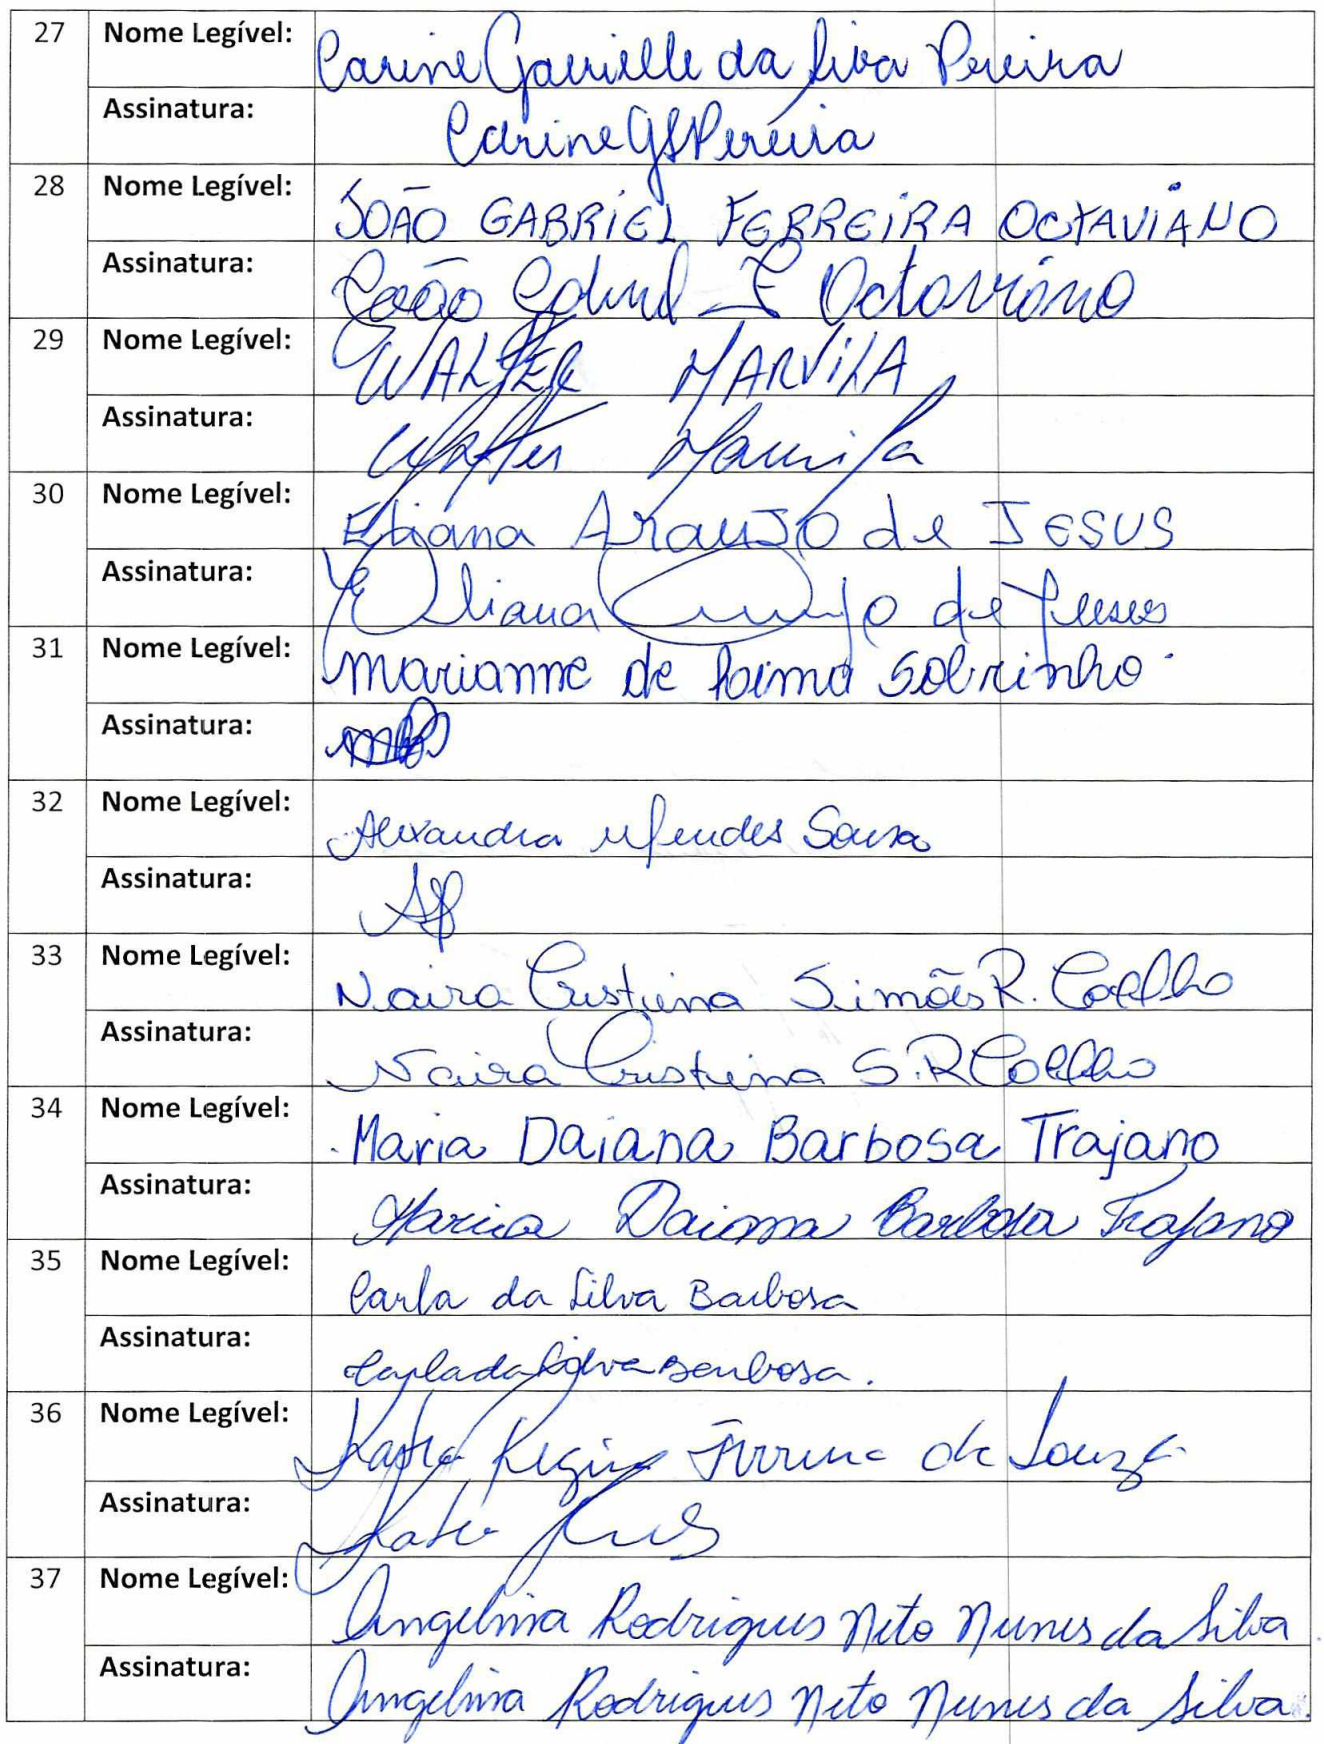 27 Nome Legível: Carine Gabrielle da Silva Pereira
Assinatura: Carine GSPereira
28 Nome Legível: JOÃO GABRIEL FERREIRA OCTAVIANO
Assinatura: João Gabriel F Octaviano
29 Nome Legível: WALTER MARVILA
Assinatura: Walter Marvila
30 Nome Legível: Eliana Araujo de JESUS
Assinatura: Eliana Araujo de Jesus
31 Nome Legível: Marianne de Lima Sobrinho
Assinatura:
32 Nome Legível: Alexandra Mendes Sousa
Assinatura:
33 Nome Legível: Naira Cristina Simões R. Coelho
Assinatura: Naira Cristina S.R Coelho
34 Nome Legível: Maria Daiana Barbosa Trajano
Assinatura: Maria Daiana Barbosa Trajano
35 Nome Legível: Carla da Silva Barbosa
Assinatura: Carla da Silva Barbosa.
36 Nome Legível: Katia Regina Ferreira de Souza
Assinatura: Katia
37 Nome Legível: Angelina Rodrigues Neto Nunes da Silva
Assinatura: Angelina Rodrigues Neto Nunes da Silva.